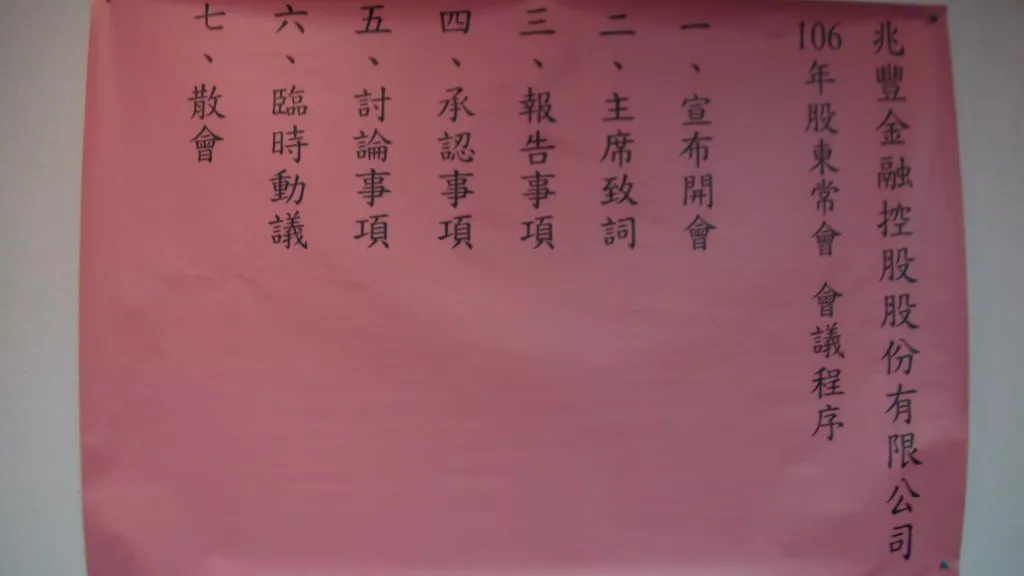 兆豐金融控股股份有限公司
106年股東常會 會議程序
一、宣布開會
二、主席致詞
三、報告事項
四、承認事項
五、討論事項
六、臨時動議
七、散會